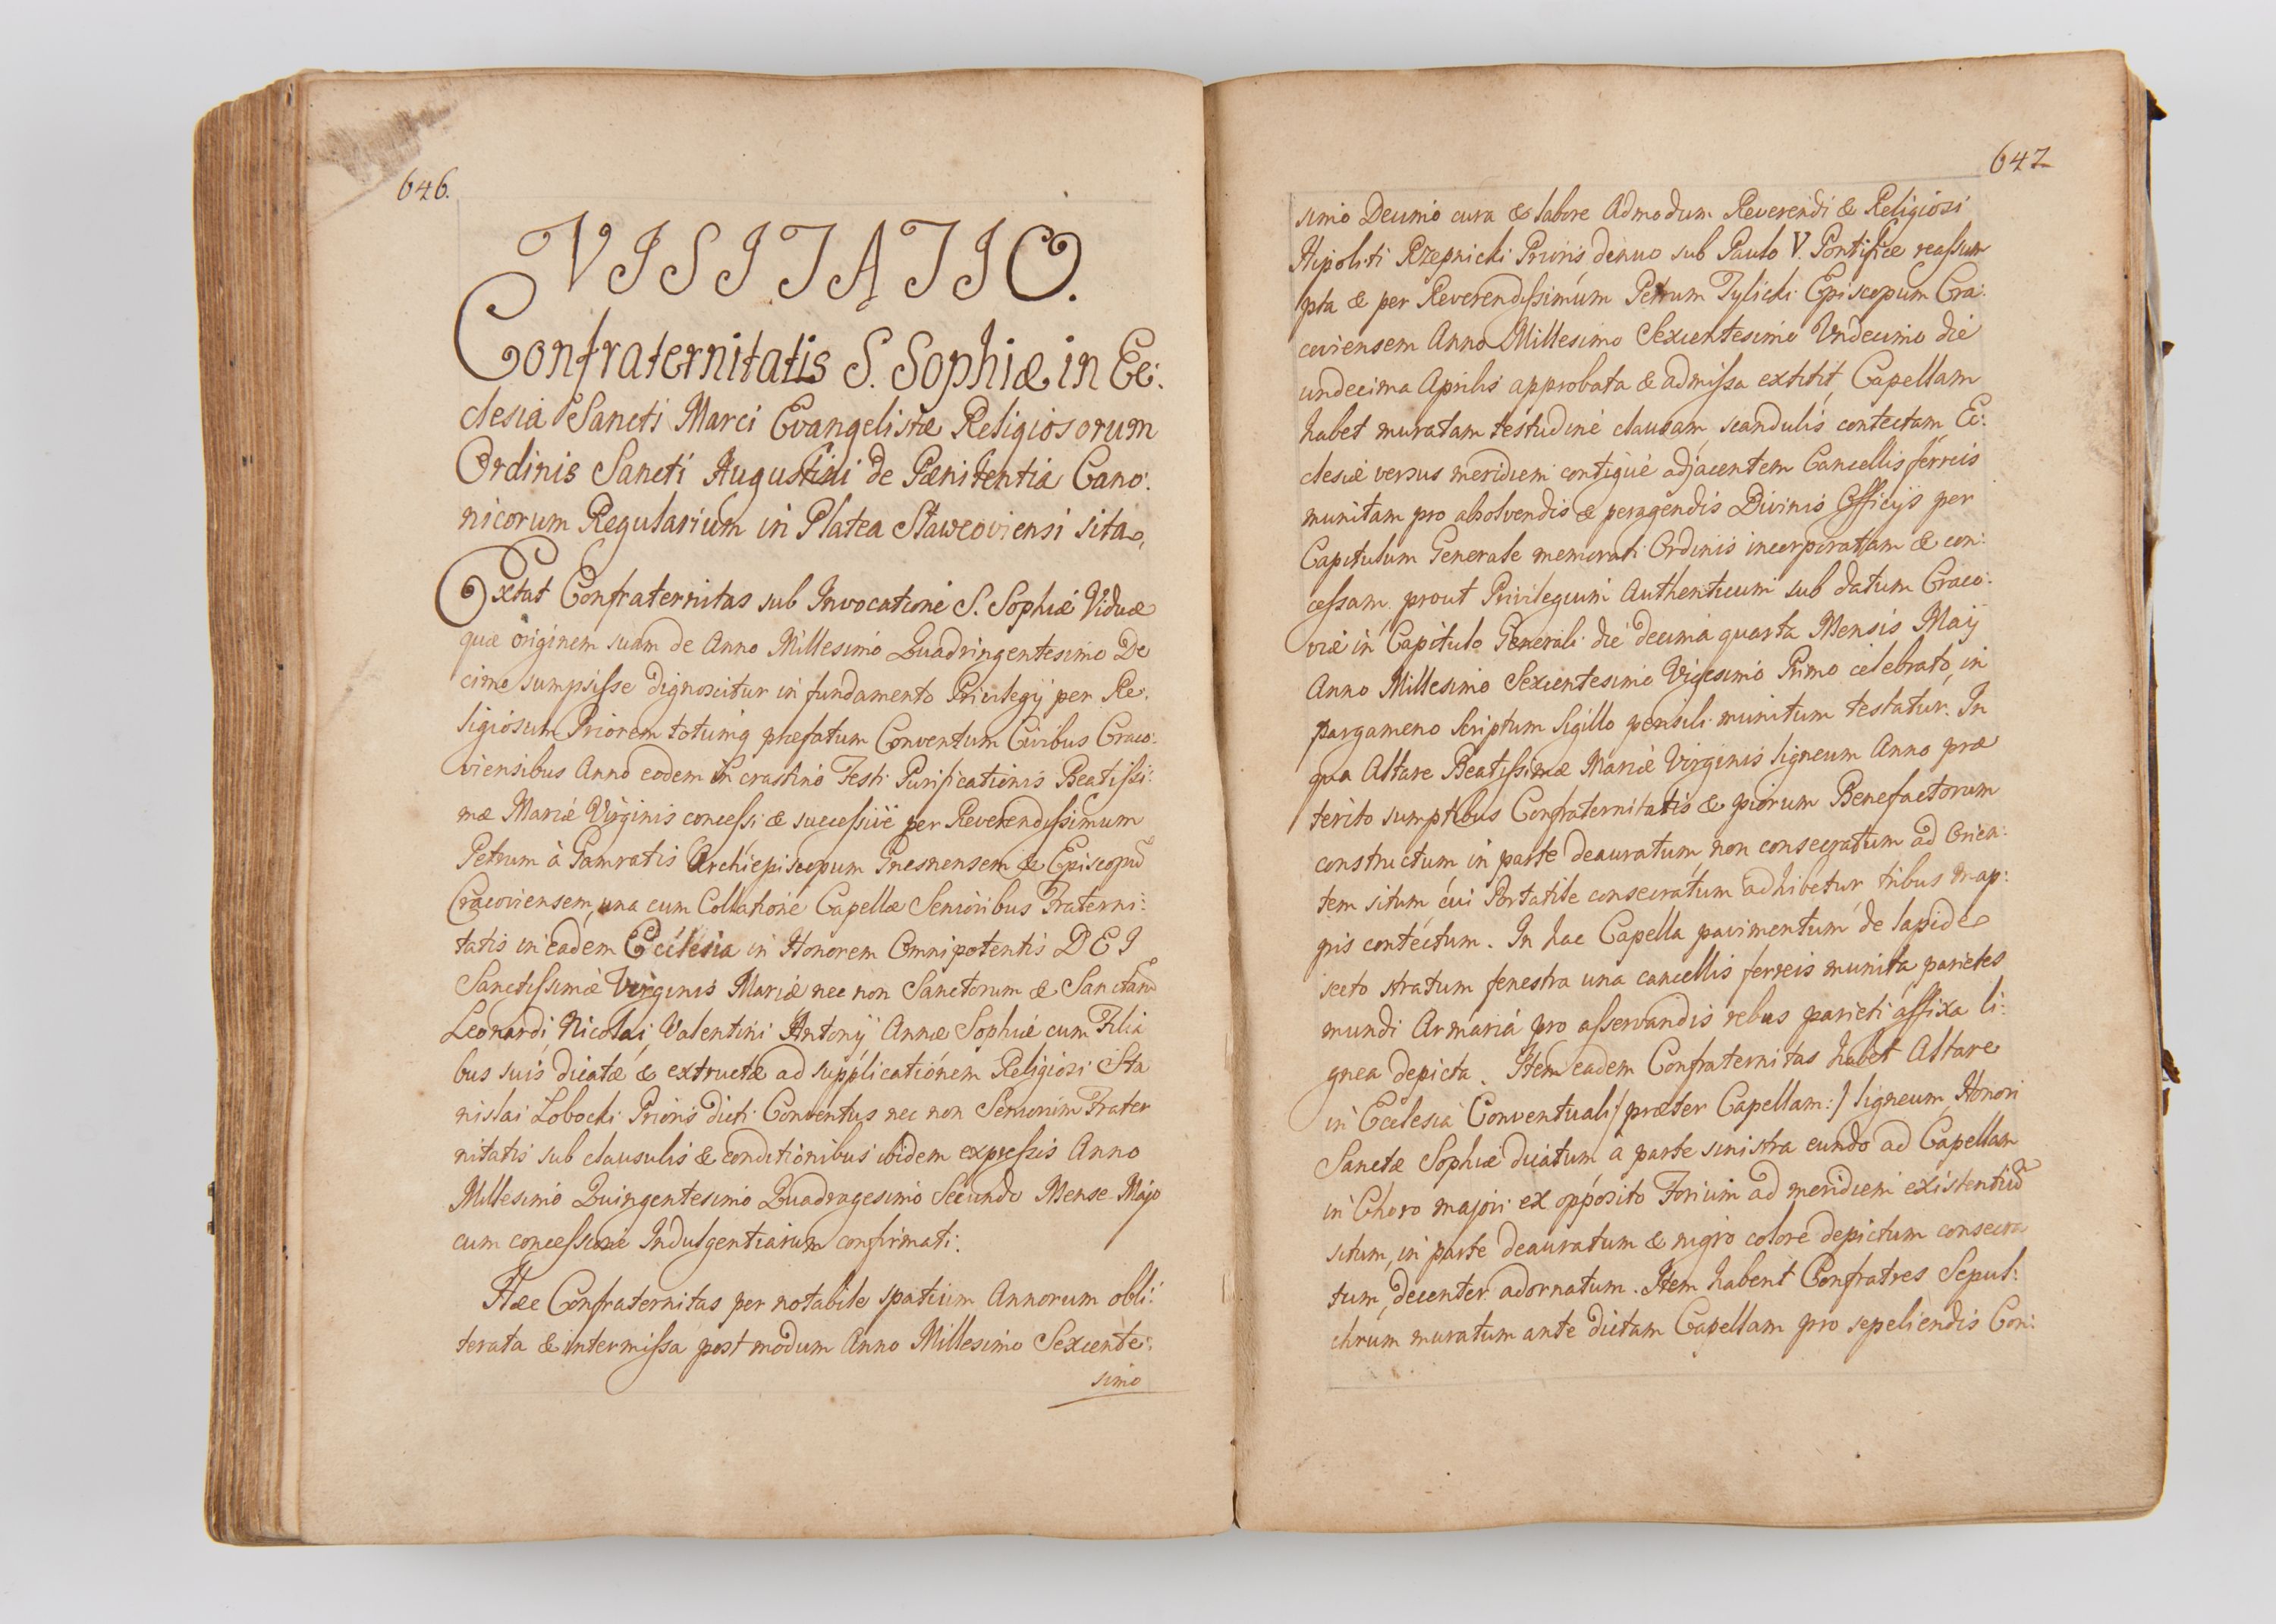 646.
VISITATIO.
Confraternitatis S. Sophiæ in Ec:
clesia Sancti Marci Evangelistæ Religiosorum
Ordinis Sancti Augustini de Pænitentia Cano:
nicorum Regularium in Platea Slawcoviensi sita.
Extat Confraternitas sub Invocatione S. Sophiæ Viduæ
quæ originem suam de Anno Millesimo Quadringentesimo De
cimo sumpsisse dignoscitur in fundamento Privilegij per Re:
ligiosum Priorem totumq præfatum Conventum Civibus Craco:
viensibus Anno eodem in crastino Festi Purificationis Beatissi:
mæ Mariæ Virginis concessi & successive per Reverendissimum
Petrum à Gamratis Archiepiscopum Gnesnensem & Episcopũ
Cracoviensem, una cum Collatione Capellæ Senioribus Fraterni:
tatis in eadem Ecclesia in Honorem Omnipotentis DEI
Sanctissimæ Virginis Mariæ nec non Sanctorum & Sanctarũ
Leonardi, Nicolai, Valentini Antonij Annæ Sophiæ cum Filia
bus suis dicatæ & extructæ ad supplicationem Religiosi Sta
nislai Lobocki Prioris dicti Conventus nec non Seniorum Frater
nitatis sub clausulis & conditionibus ibidem expressis Anno
Millesimo Quingentesimo Quadragesimo Secundo Mense Majo
cum concessione Indulgentiarum confirmati.
Hæc Confraternitas per notabile spatium Annorum obli:
terata & intermissa post modum Anno Millesimo Sexcente:
simo
647
simo Decimo cura & labore Admodum Reverendi & Religiosi
Hipoliti Rzepnicki Prioris denuo sub Paulo V. Pontifice reassum
pta & per Reverendissimum Petrum Tylicki Episcopum Cra:
coviensem Anno Millesimo Sexcentesimo Undecimo die
undecima Aprilis approbata & admissa extitit, Capellam
habet muratam testudine clausam, scandulis contectam Ec:
clesiæ versus meridiem contigue adjacentem Cancellis ferreis
munitam pro absolvendis & peragendis Divinis Officijs per
Capitulum Generale memorati Ordinis incorporatam & con:
cessam, prout Privilegium Authenticum sub datum Craco:
viæ in Capitulo Generali die decima quarta Mensis Maij
Anno Millesimo Sexcentesimo Vigesimo Primo celebrato, in
pargameno scriptum Sigillo pensili munitum testatur. In
qua Altare Beatissimæ Mariæ Virginis ligneum Anno præ
terito sumptibus Confraternitatis & piorum Benefactorum
constructum, in parte deauratum, non consecratum ad Orien:
tem situm, cui Portatile consecratum adhibetur, tribus map:
pis contectum. In hac Capella pavimentum de lapide
secto stratum fenestra una cancellis ferreis munita, parietes
mundi Armaria pro asservandis rebus parieti affixa li:
gnea depicta. Item eadem Confraternitas habet Altare
in Ecclesia Conventuali /præter Capellam:/ ligneum, Honori
Sanctæ Sophiæ dicatum a parte sinistra eundo ad Capellam
in Choro majori ex opposito Forium ad meridiem existentiũ
situm, in parte deauratum & nigro colore depictum consecra
tum, decenter adornatum. Item habent Confratres Sepul:
chrum muratum ante dictam Capellam pro sepeliendis Con: